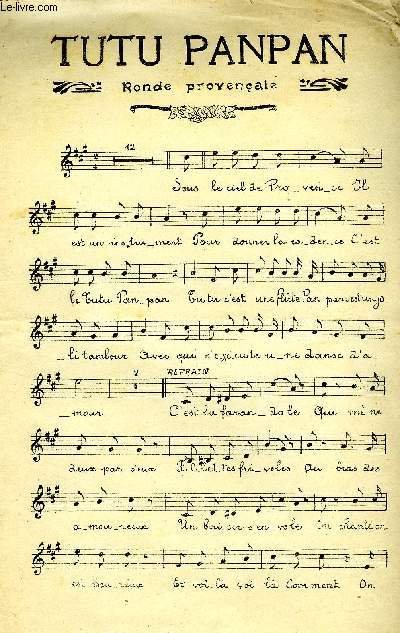 Le-livre.com
TUTU PANPAN
Ronde provençale
12
Sous le ciel de Pro_ven_ce Il
est un ins_tru_ment Pour donner la ca_den_ce C'est
le Tutu Pan_pan Tutu c'est une flûte Pan pan est un jo
_li tambour Avec qui s'exécute u_ne danse d'a
REFRAIN
_mour C'est la faran_do_le Qui mène
deux par deux fri_voles Au bras des
a_mou_reux Un bai_ser s'en vole On chante on
est heu_reux Et voi_la voi_là comment On